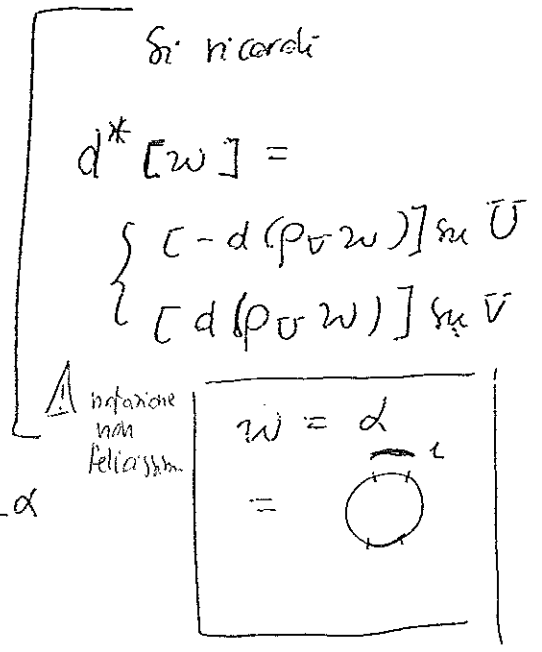 Si ricordi
d* [w] =
{ [-d(ρ_V w)] su U
[d(ρ_U w)] su V
⚠ notazione
non
felicissim.
w = α
1
=
-α